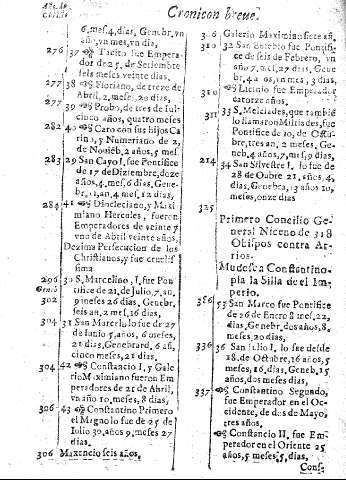 Cronicon breve.
6, mes, 4, dias, Genebr, vn
año, vn mes, vn dia,
276 37 Tacito fue Empera-
dor de 25 de Setiembre
seis meses veinte dias.
277 38 Floriano, de treze de
Abril, 2, meses, 20 dias,
277 39 Probo, de tres de Iul-
cinco años, quatro meses
282 40 Caro con sus hijos Ca
rino, y Numeriano de 2,
de Nouiẽb, 2 años, 5 mes
283 29 San Cayo I. fue Pontifice
de 17 de Diziembre, doze
años, 4, mes, 6 dias, Gene-
br, 11, an, 4 mes, 12 dias,
284 41 Diocleciano, y Max
imiano Hercules, fueron
Emperadores de veinte y
vno de Abril veinte años,
Dezima Persecucion de los
Christianos, y fue cruelis
sima.
296 30 S. Marcelino I, fue Pon
tifice de 21, de Iulio, 7, an,
302 9 meses 26 dias, Genebr,
seis an, 2 mes, 16 dias,
304 31 San Marcelo I. fue de 27
de Iunio 5, años, 6 meses,
21 dias, Genebrard, 6 añ,
cinco meses, 21 dias,
304 42 Constancio I, y Gale
rio Maximiano fueron Em
peradores de 21 de Abril,
vn año, 10, meses, 8 dias,
306 43 Constantino Primero
el Magno lo fue de 25 de
Iulio 30, años, 9, meses 27
dias.
306 Maxencio seis años,
306 Galerio Maximino siete añ,
310 32 San Eusebio fue Pontifi-
ce de seis de Febrero, vn
año 7, mes, 27 dias, Gene
br, 4 años, vn mes, 3 dias,
310 Licinio fue Emperador
catorze años,
311 33 S. Melciades, que tambiẽ
lo llamaron Milciades, fue
Pontifice de 10, de Octu-
bre, tres an, 2 meses, Ge-
neb, 4 años, 7, mes, 9 dias,
214 34 San Silvestre I. lo fue de
28 de Otubre 21, años, 4,
dias, Genebra, 13 años, 10,
meses, onze dias
325
Primero Concilio Ge-
neral Niceno de 318
Obispos contra Ar-
rio.
Mudesse a Constantino-
pla la Silla de el Im-
perio.
336 35 San Marco fue Pontifice
de 26 de Enero 8 mes, 22,
dias, Genebr, dos años, 8,
meses, 20 dias,
336 36 San Iulio I, lo fue desde
18. de Octubre, 16 años, 5
meses, 16, dias, Geneb, 15
años, dos meses dias,
337 Constantino Segundo,
fue Emperador en el Oc-
cidente, de dos de Mayo,
tres años,
Constancio II, fue Em-
perador en el Oriente 25
años, 5 meses, 5, dias,
Cons-